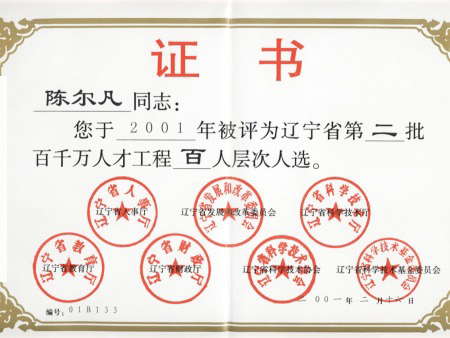 证书
陈尔凡同志：
您于2001年被评为辽宁省第二批
百千万人才工程百人层次人选。
辽宁省人事厅 辽宁省发展和改革委员会 辽宁省科学技术厅
辽宁省人事厅 辽宁省发展和改革委员会 辽宁省科学技术厅
辽宁省教育厅 辽宁省财政厅 辽宁省科学技术协会 辽宁省科学技术基金委员会
辽宁省教育厅 辽宁省财政厅 辽宁省科学技术协会 辽宁省科学技术基金委员会
编号：01B133
二00一年二月十六日